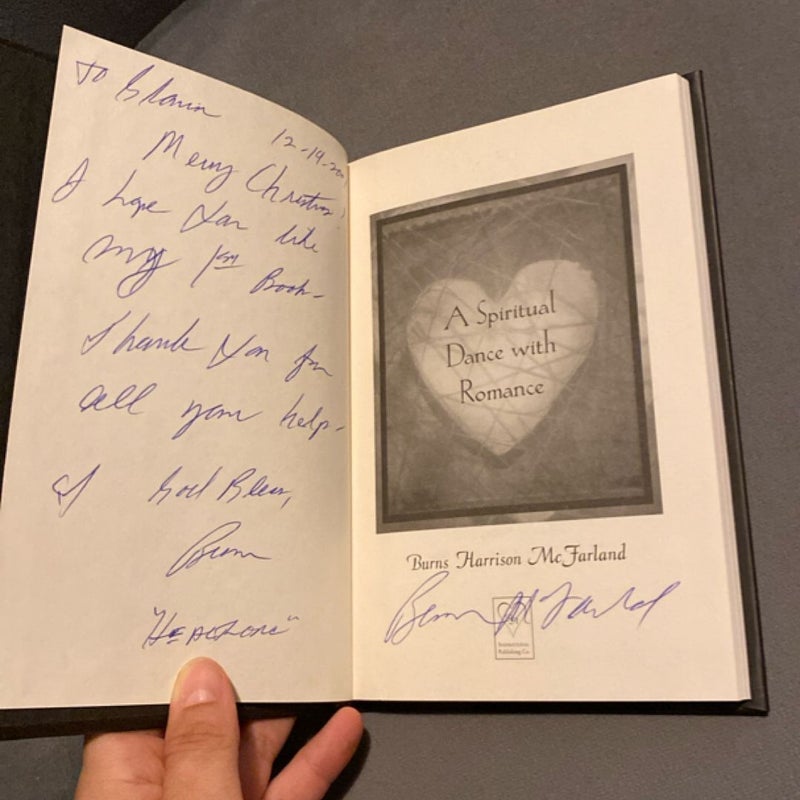 To
12-19-20
Merry Christmas!
I hope you like
my 1st Book-
Thank you for
all your help-
God Bless,
Burns
A Spiritual
Dance with
Romance
Burns Harrison McFarland
Burns McFarland
Publishing Co.